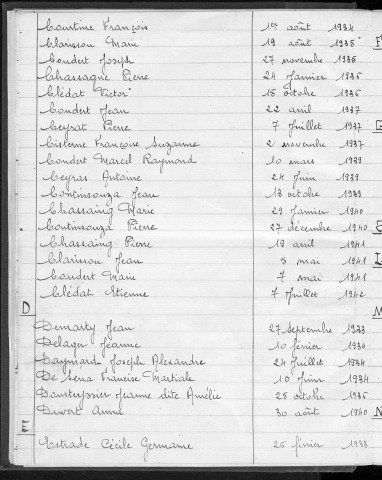 Courtine François 1er août 1934
Clarisson Marie 19 août 1935
Coudert Joseph 27 novembre 1935
Chassagne Pierre 24 Janvier 1936
Clédat Victor 15 octobre 1936
Coudert Jean 22 avril 1937
Ceyrat Pierre 7 Juillet 1937
Cisterne Françoise Suzanne 2 novembre 1937
Coudert Marcel Raymond 10 mars 1939
Ceyras Antoine 24 Juin 1939
Continsouza Jean 18 octobre 1939
Chassaing Marie 29 Janvier 1940
Continsouza Pierre 27 décembre 1940
Chassaing Pierre 19 avril 1941
Clarisson Jean 5 mai 1941
Coudert Marie 7 mai 1941
Clédat Etienne 7 Juillet 1942
D
Demarty Jean 27 Septembre 1933
Delager Jeanne 10 février 1934
Daymard Joseph Alexandre 24 Juillet 1934
De Sena Francise Martiale 10 1934
Jeanne dite Amélie 26 octobre 1936
Anna 30 août 1940
E
Estrade Cécile Germaine 26 février 1933